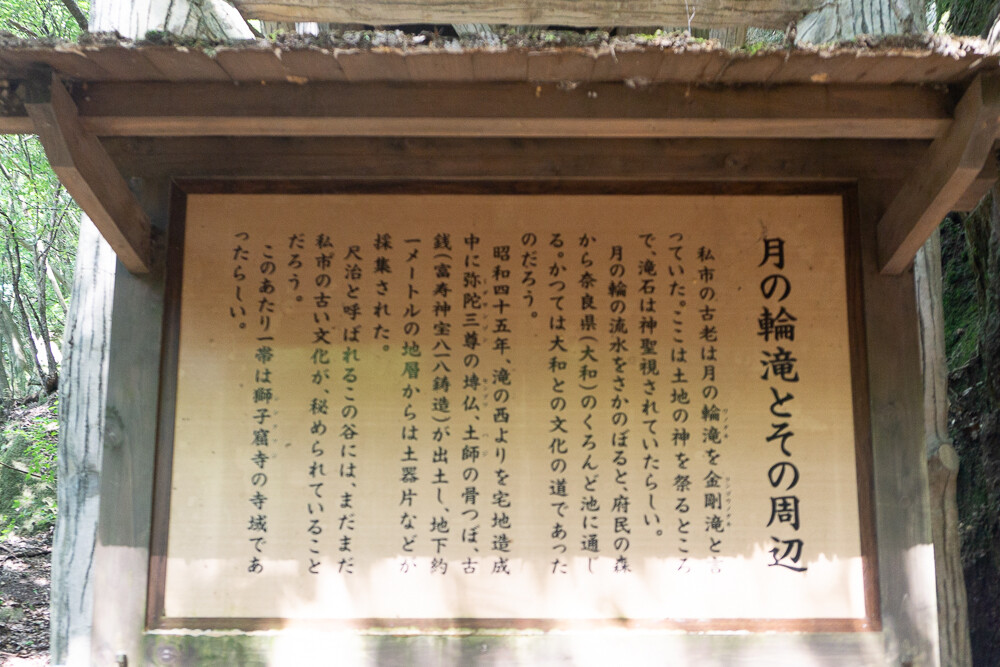 月の輪滝とその周辺
私市の古老は月の輪滝を金剛滝と言
っていた。ここは土地の神を祭るところ
で、滝石は神聖視されていたらしい。
月の輪の流水をさかのぼると、府民の森
から奈良県(大和)のくろんど池に通じ
る。かつては大和との文化の道であった
のだろう。
昭和四十五年、滝の西よりを宅地造成
中に弥陀三尊の塼仏、土師の骨つぼ、古
銭(富寿神宝八一八鋳造)が出土し、地下約
一メートルの地層からは土器片などが
採集された。
尺治と呼ばれるこの谷には、まだまだ
私市の古い文化が、秘められていること
だろう。
このあたり一帯は獅子窟寺の寺域であ
ったらしい。